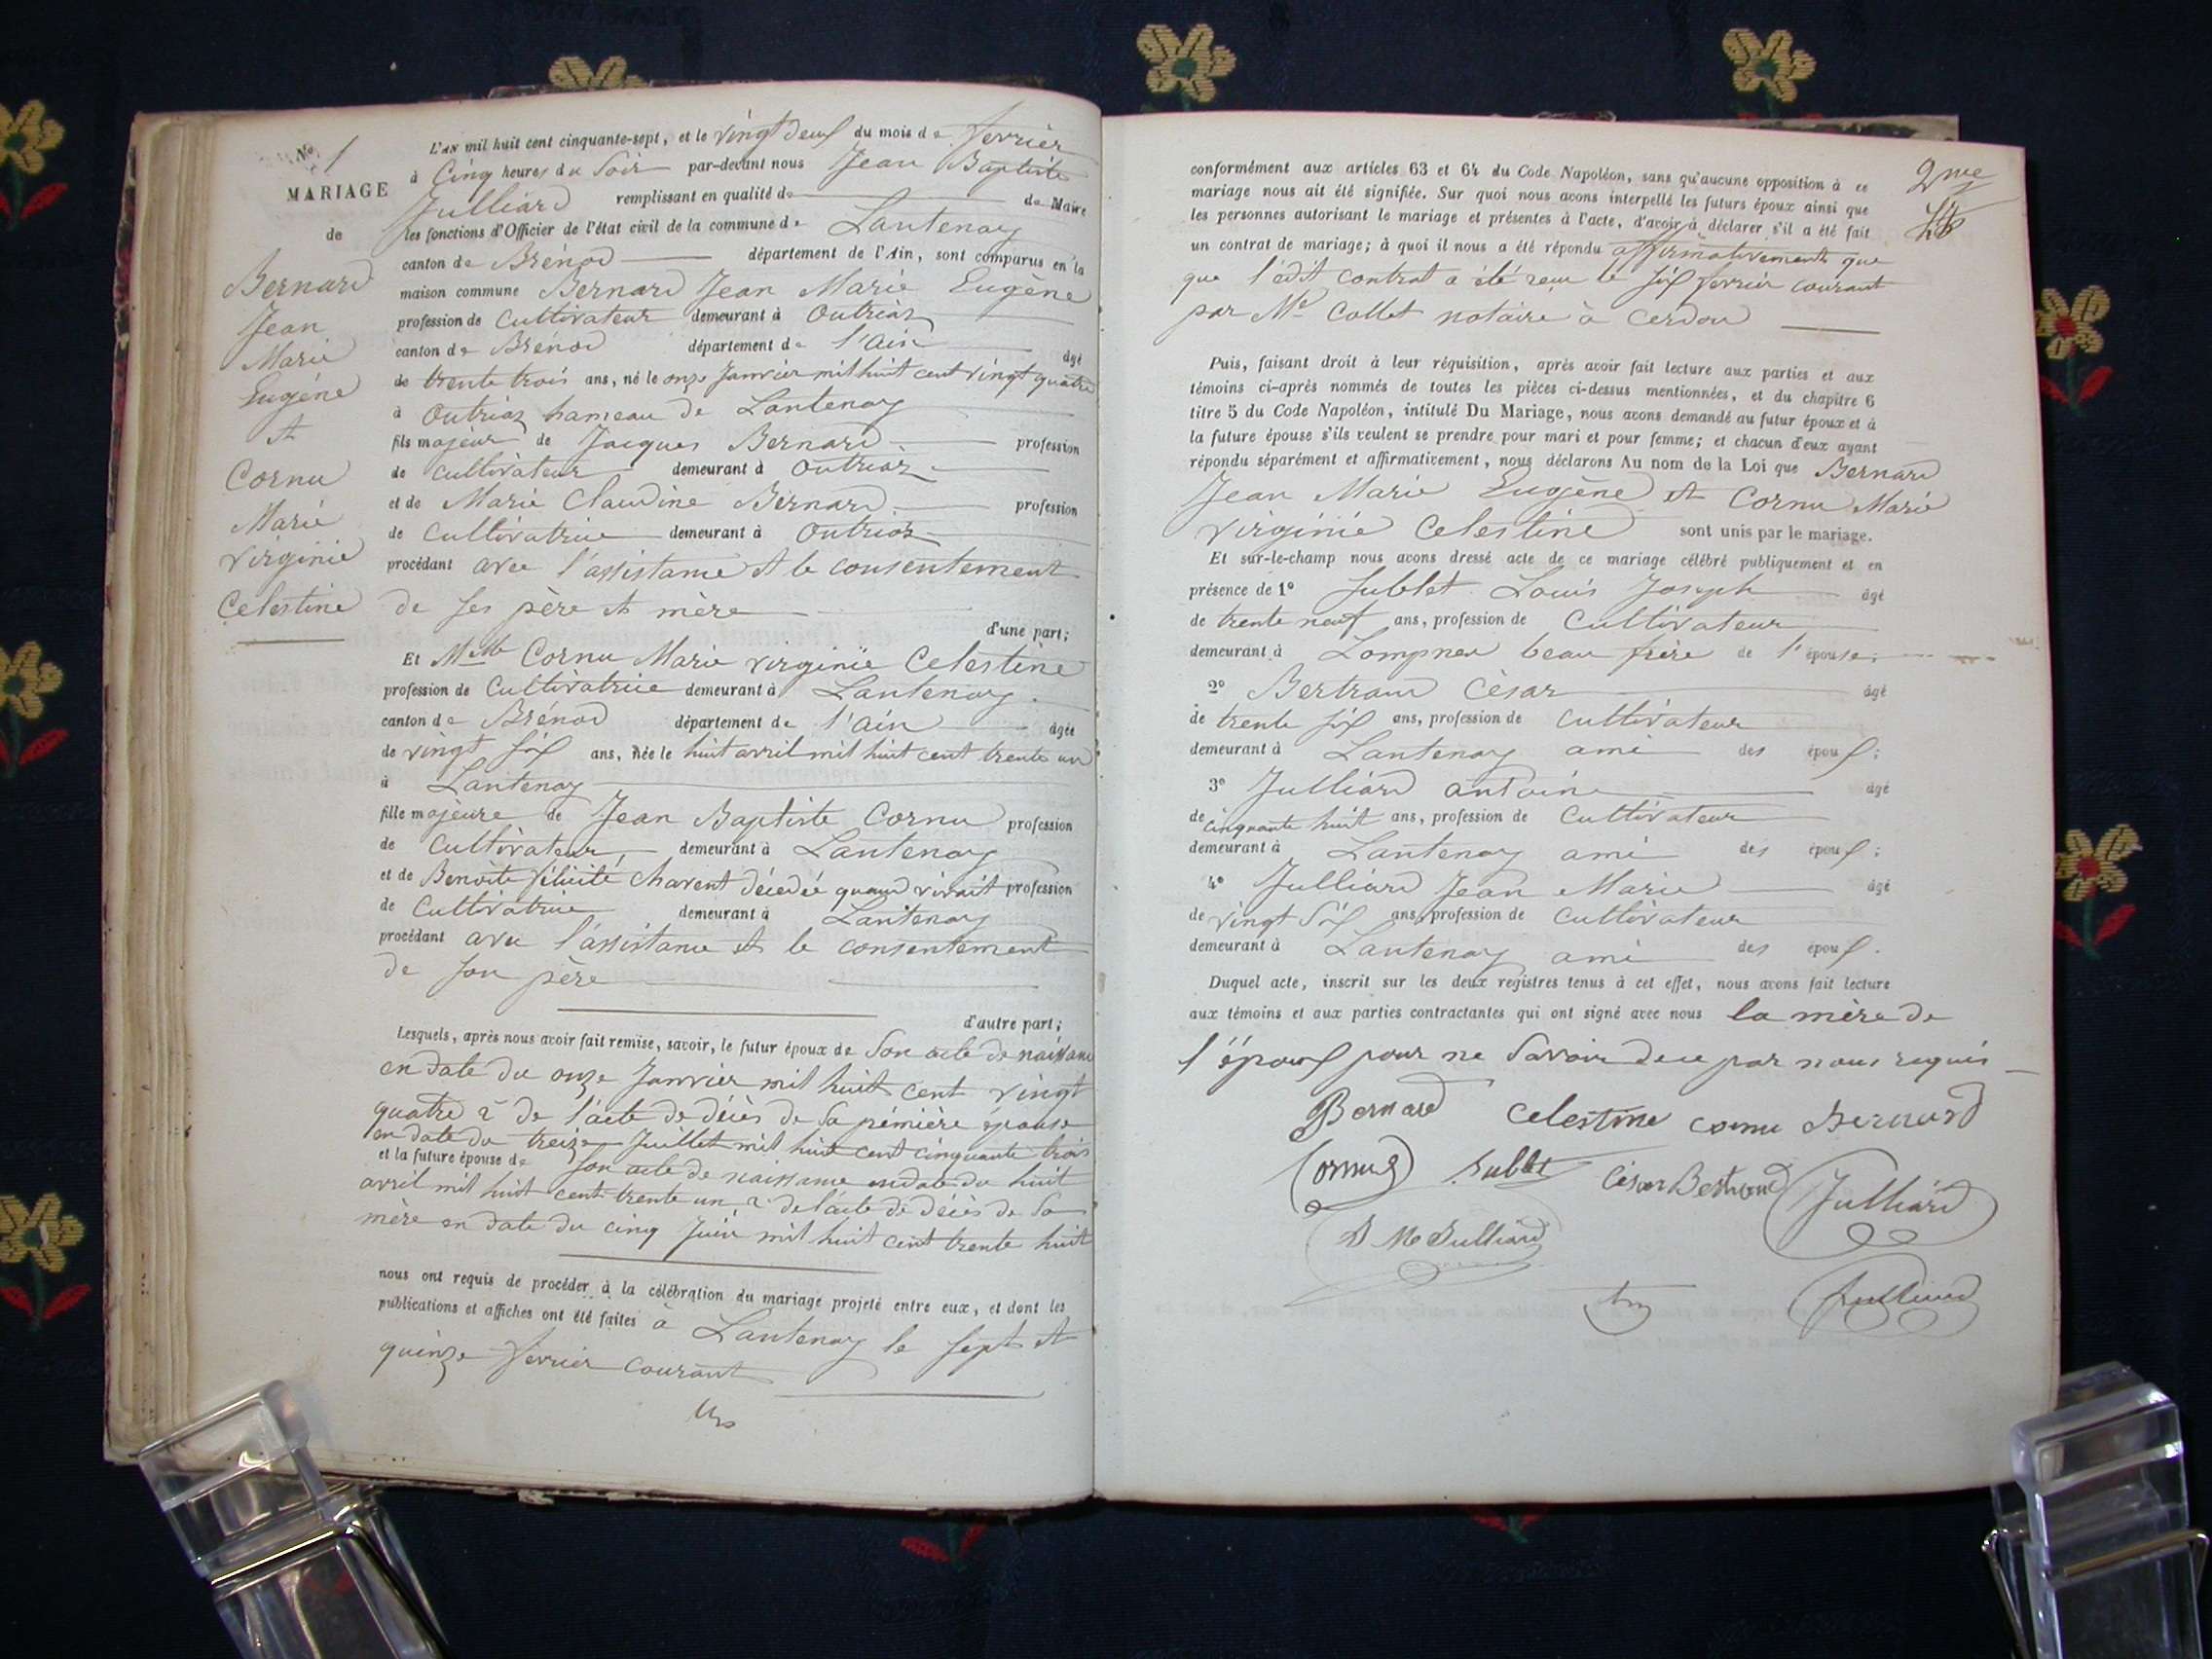 No 1
MARIAGE
de
Bernard
Jean
Marie
Eugène
et
Cornu
Marie
Virginie
Celestine
L'an mil huit cent cinquante-sept, et le vingt deux du mois de fevrier
à Cinq heures du Soir par-devant nous Jean Baptiste
Julliard remplissant en qualité de de Maire
les fonctions d'Officier de l'état civil de la commune de Lantenay
canton de Brénod département de l'Ain, sont comparus en la
maison commune Bernard Jean Marie Eugène
profession de Cultivateur demeurant à Outriaz
canton de Brenod département de l'ain âgé
de trente trois ans, né le onze Janvier mil huit cent vingt quatre
à Outriaz hameau de Lantenay
fils majeur de Jacques Bernard profession
de cultivateur demeurant à Outriaz
et de Marie Claudine Bernard profession
de Cultivatrice demeurant à Outriaz
procédant avec l'assistance et le consentement
de ses père et mère
d'une part;
Et Melle Cornu Marie virginie Celestine
profession de Cultivatrice demeurant à Lantenay
canton de Brénod département de l'ain âgée
de vingt six ans, née le huit avril mil huit cent trente un
à Lantenay
fille majeure de Jean Baptiste Cornu profession
de Cultivateur demeurant à Lantenay
et de Benoite félicité Charent décédée quand vivait profession
de Cultivatrice demeurant à Lantenay
procédant avec l'assistance et le consentement
de son père
d'autre part;
Lesquels, après nous avoir fait remise, savoir, le futur époux de Son acte de naissance
en date du onze Janvier mil huit cent vingt
quatre 2° de l'acte de décès de Sa pémière épouse
en date du treize Juillet mil huit cent cinquante trois
et la future épouse de Son acte de naissance en date du huit
avril mil huit cent trente un 2° de l'acte de décès de Sa
mère en date du cinq Juin mil huit cent trente huit
nous ont requis de procéder à la célébration du mariage projeté entre eux, et dont les
publications et affiches ont été faites à Lantenay le sept et
quinze fevrier courant
2me
conformément aux articles 63 et 64 du Code Napoléon, sans qu'aucune opposition à ce
mariage nous ait été signifiée. Sur quoi nous avons interpellé les futurs époux ainsi que
les personnes autorisant le mariage et présentes à l'acte, d'avoir à déclarer s'il a été fait
un contrat de mariage; à quoi il nous a été répondu affirmativement que
que l'edit contrat a été reçu le six fevrier courant
par Me Collet notaire à Cerdon
Puis, faisant droit à leur réquisition, après avoir fait lecture aux parties et aux
témoins ci-après nommés de toutes les pièces ci-dessus mentionnées, et du chapitre 6
titre 5 du Code Napoléon, intitulé Du Mariage, nous avons demandé au futur époux et à
la future épouse s'ils veulent se prendre pour mari et pour femme; et chacun d'eux ayant
répondu séparément et affirmativement, nous déclarons Au nom de la Loi que Bernard
Jean Marie Eugène et Cornu Marie
virginie Celestine sont unis par le mariage.
Et sur-le-champ nous avons dressé acte de ce mariage célébré publiquement et en
présence de 1° Sublet Louis Joseph âgé
de trente neuf ans, profession de Cultivateur
demeurant à Lompnes beau frère de l'épouse;
2° Bertrand César âgé
de trente six ans, profession de cultivateur
demeurant à Lantenay ami des époux;
3° Julliard antoine âgé
de cinquante huit ans, profession de Cultivateur
demeurant à Lantenay ami des époux;
4° Julliard Jean Marie âgé
de vingt Six ans, profession de Cultivateur
demeurant à Lantenay ami des époux.
Duquel acte, inscrit sur les deux registres tenus à cet effet, nous avons fait lecture
aux témoins et aux parties contractantes qui ont signé avec nous la mère de
l'époux pour ne Savoir de ce par nous requis
Bernard Celestine cornu Bernard
Cornu Sublet César Bertrand Julliard
J M Julliard
Julliard